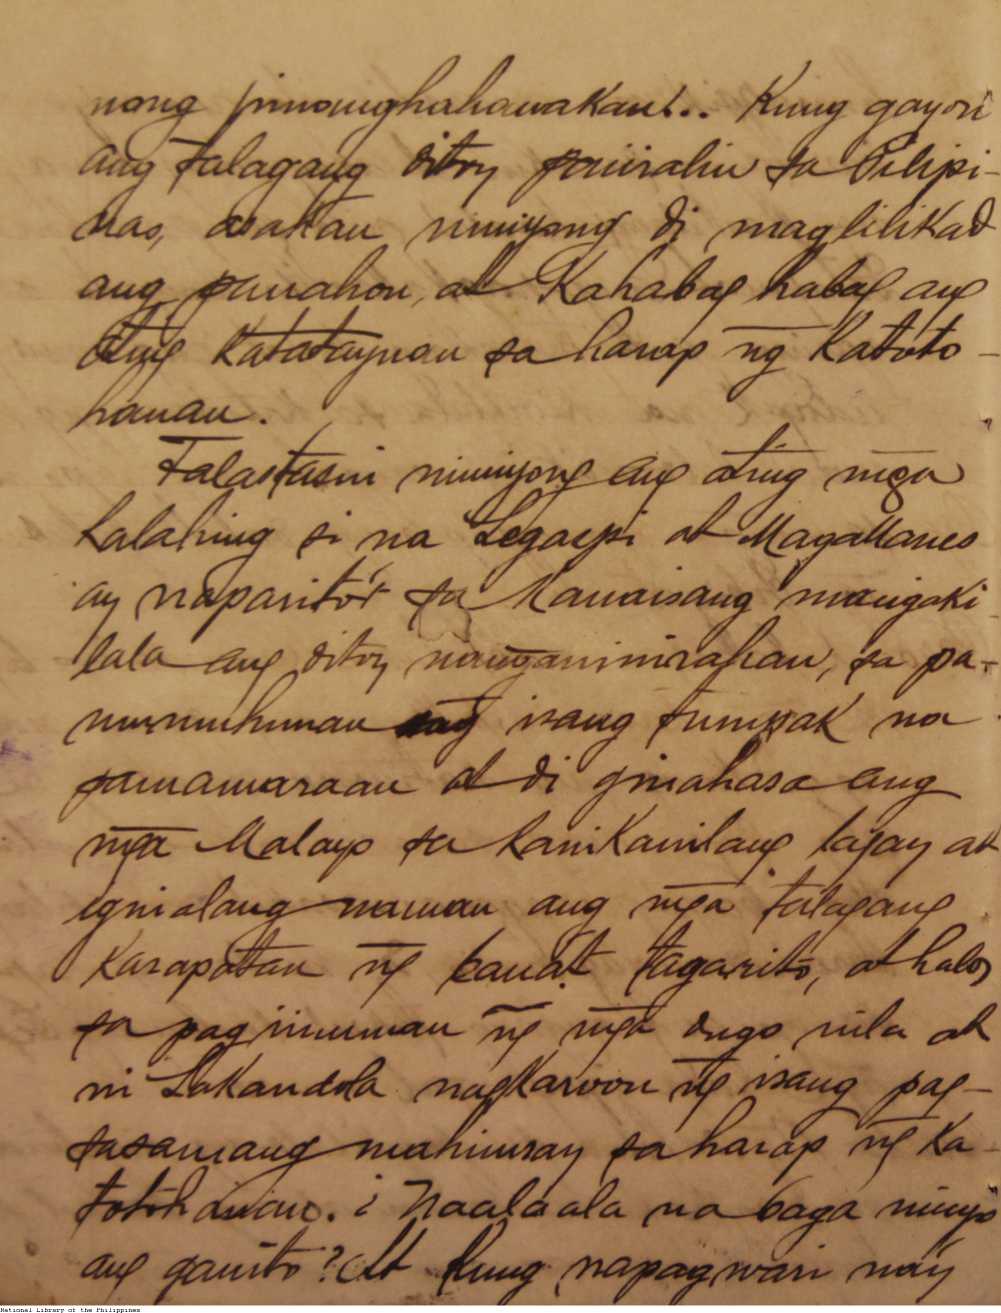 nong pinanghahawakan!.. Kung gayon
ang talagang ditoy paiiralin sa Pilipi-
nas, asahan ninyong di maglilikad
ang panahon, at Kahabag habag ang
ating Katatayuan sa harap ng Katoto-
hanan.
Talastasin ninyong ang ating mga
kalahing si na Legaspi at Magallanes
ay naparito't sa kanaisang mangaki-
lala ang ditoy nanganinirahan, sa pa-
mumuhunan ng isang tumpak na
pamamaraan at di ginahasa ang
mga Malayo sa kanikanilang lagay at
iginalang naman ang mga talagang
Karapatan ng bawa't tagarito, at halos
sa pag iinuman ng mga dugo nila at
ni Lakandola nagkaroon ng isang pag-
sasamang mahinusay sa harap ng Ka-
totohanan. ¿Naalaala na baga ninyo
ang ganito? At kung napagwari nay
National Library of the Philippines